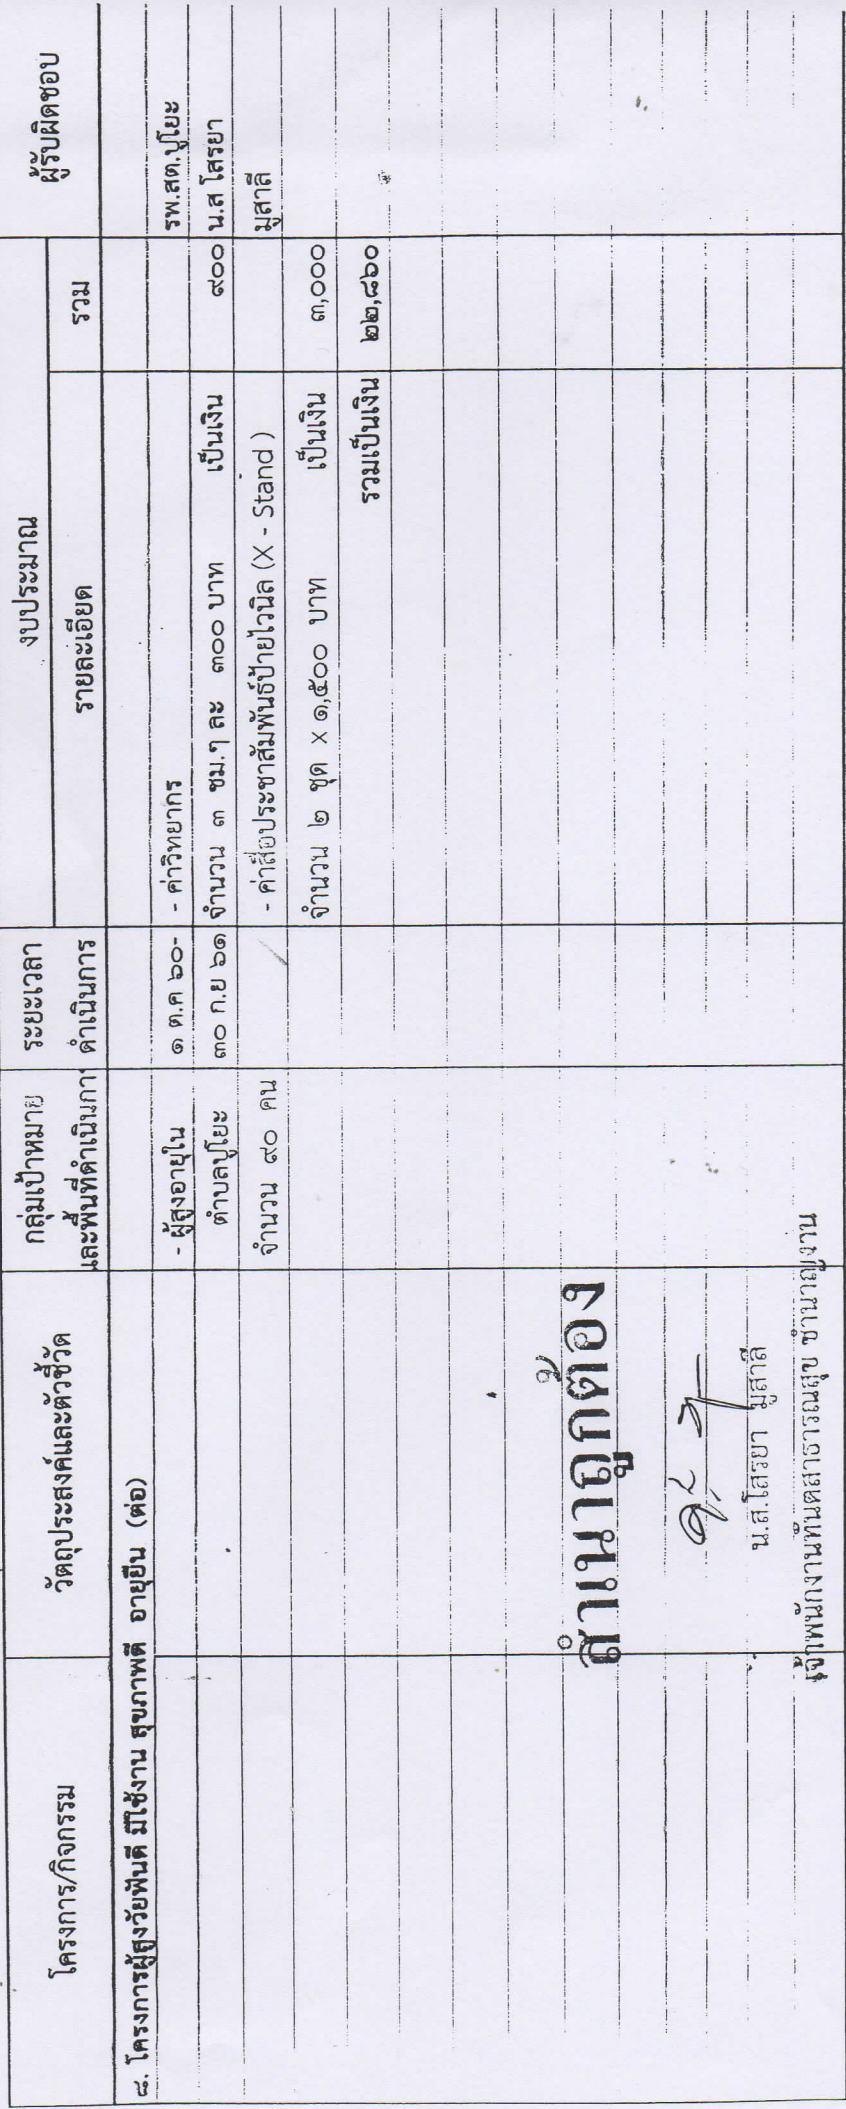 โครงการ/กิจกรรม วัตถุประสงค์และตัวชี้วัด กลุ่มเป้าหมาย ระยะเวลา งบประมาณ ผู้รับผิดชอบ
และพื้นที่ดำเนินกา ดำเนินการ รายละเอียด รวม
๘. โครงการผู้สูงวัยฟันดี มีใช้งาน สุขภาพดี อายุยืน (ต่อ)
- ผู้สูงอายุใน ๑ ต.ค ๖๐- - ค่าวิทยากร รพ.สต.ปูโยะ
ตำบลปูโยะ ๓๐ ก.ย ๖๑ จำนวน ๓ ชม.ๆ ละ ๓๐๐ บาท เป็นเงิน ๙๐๐ น.ส โสรยา
จำนวน ๙๐ คน - ค่าสื่อประชาสัมพันธ์ป้ายไวนิล (X - Stand ) มูสาลี
จำนวน ๒ ชุด X ๑,๕๐๐ บาท เป็นเงิน ๓,๐๐๐
รวมเป็นเงิน ๒๒,๘๖๐
สำเนาถูกต้อง
น.ส.โสรยา มูสาลี
เจ้าพนักงานทันตสาธารณสุข ชำนาญงาน